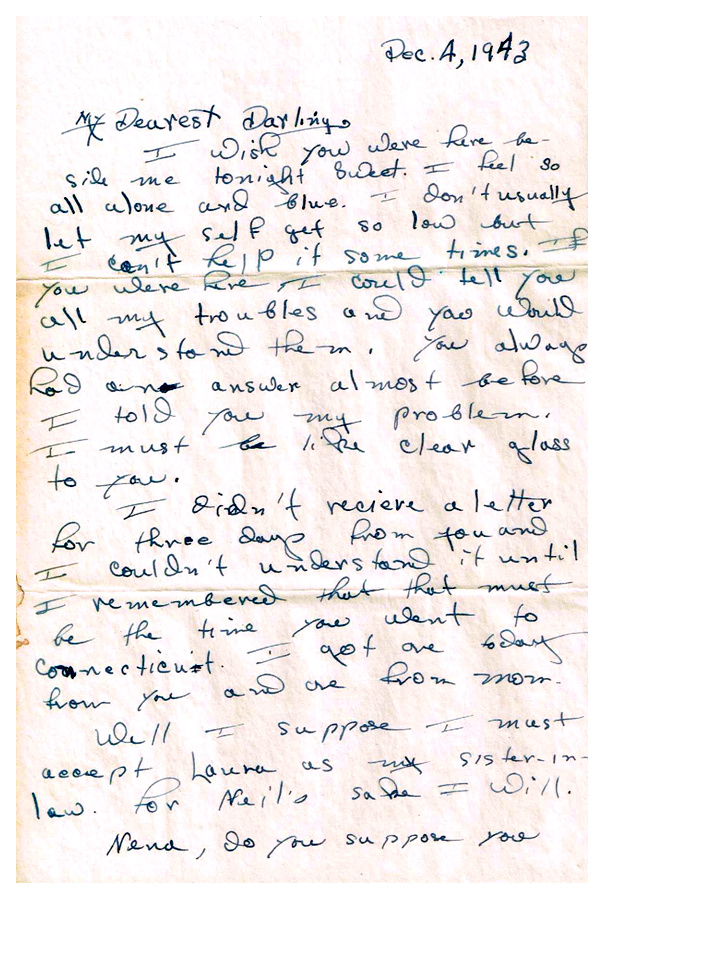 Dec. 4, 1943
My Dearest Darling,
I wish you were here be-
side me tonight Sweet. I feel so
all alone and blue. I don't usually
let my self get so low but
I can't help it some times. If
you were here, I could tell you
all my troubles and you would
understand them. You always
had an answer almost before
I told you my problem.
I must be like clear glass
to you.
I didn't recieve a letter
for three days from you and
I couldn't understand it until
I remembered that that must
be the time you went to
Connecticut. I got one today
from you and one from mom.
Well I suppose I must
accept Laura as my sister-in-
law. For Neil's sake I will.
Nena, do you suppose you